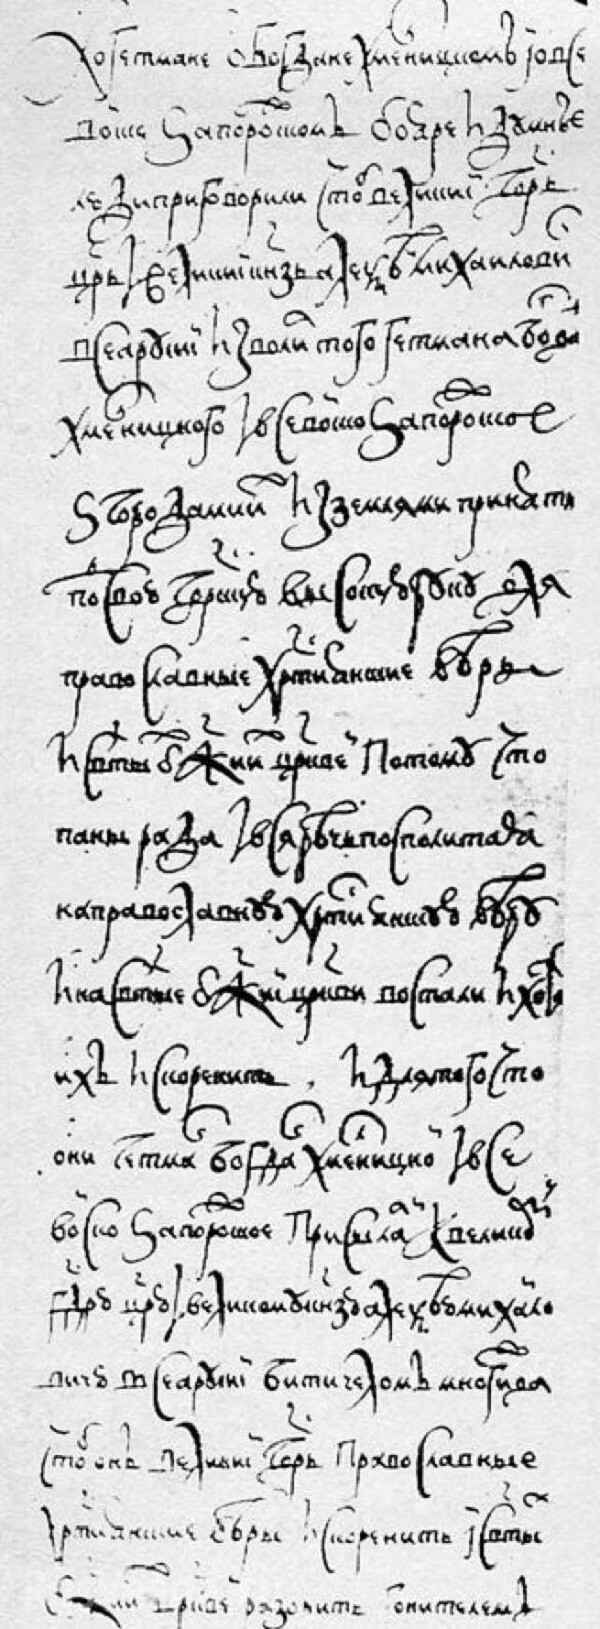 А о гетмане о Богдане Хмелницком и о все
войске Запорожском бояре и думные
люди приговорили чтоб великий гдрь
црь и великий кнзь Алексѣй Михаилович
всеа Русии изволил того гетмана Богдана
Хмелницкого и все войско Запорожское
з городами их и з землями принять
под свою гдрскую высокую руку для
православные хртиянские вѣры
и свтых бжиих црквей потому что
паны рада и вся Рѣчь Посполитая
на православную хртиянскую вѣру
и на свтые бжии цркви востали и хотят
их искоренить и для того что
они гетман Богдан Хмелницкой и все
войско Запорожское присылали к великому
гдрю црю и великому кнзю Алексѣю Михайло
вичю всеа Русии бити челом многижда
чтоб он великий гдрь православные
хртиянские вѣры искоренить и свтых
бжиих црквей разорить гонителем